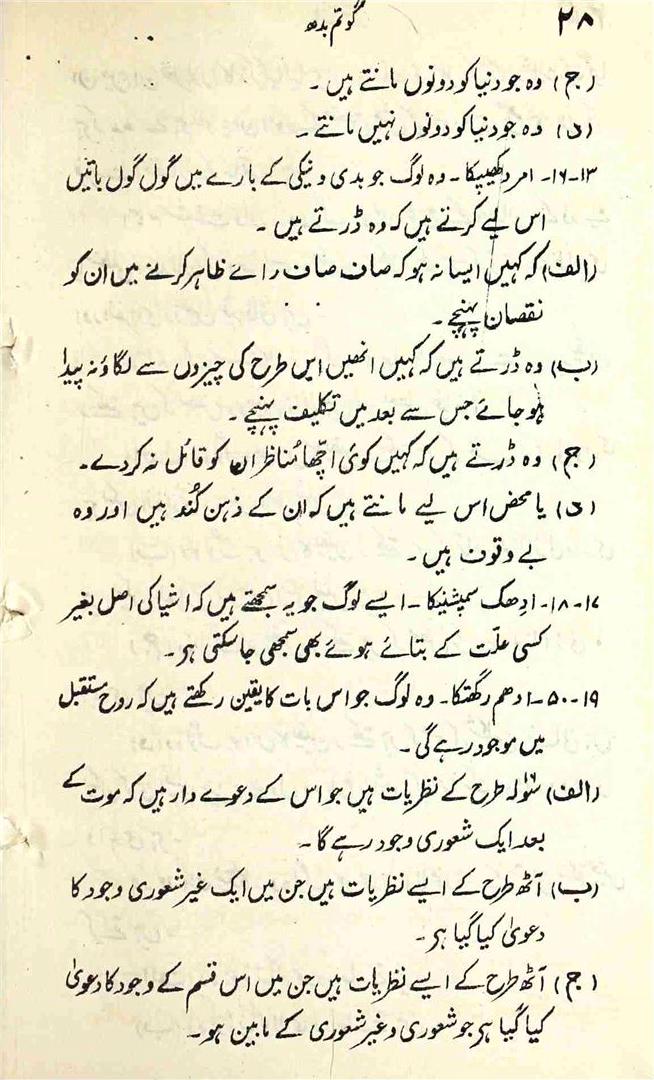 ۲۸
گوتم بدھ
(ج) وہ جو دنیا کو دونوں مانتے ہیں۔
(د) وہ جو دنیا کو دونوں نہیں مانتے۔
۱۳-۱۶۔ امردکھیپکا۔ وہ لوگ جو بدی و نیکی کے بارے میں گول گول باتیں
اس لیے کرتے ہیں کہ وہ ڈرتے ہیں۔
(الف) کہ کہیں ایسا نہ ہو کہ صاف صاف راے ظاہر کرنے میں ان کو
نقصان پہنچے۔
(ب) وہ ڈرتے ہیں کہ کہیں انھیں اس طرح کی چیزوں سے لگاؤ نہ پیدا
ہو جائے جس سے بعد میں تکلیف پہنچے۔
(ج) وہ ڈرتے ہیں کہ کہیں کوئی اچھا مناظر ان کو قائل نہ کر دے۔
(د) یا محض اس لیے مانتے ہیں کہ ان کے ذہن کُند ہیں اور وہ
بے وقوف ہیں۔
۱۷-۱۸۔ ادھک سمپنیکا۔ ایسے لوگ جو یہ سمجھتے ہیں کہ اشیا کی اصل بغیر
کسی علّت کے بتائے ہوئے بھی سمجھی جا سکتی ہر۔
۱۹-۵۰۔ ادھم رگھتکا۔ وہ لوگ جو اس بات کا یقین رکھتے ہیں کہ روح مستقبل
میں موجود رہے گی۔
(الف) سولہ طرح کے نظریات ہیں جو اس کے دعوے دار ہیں کہ موت کے
بعد ایک شعوری وجود رہے گا۔
(ب) آٹھ طرح کے ایسے نظریات ہیں جن میں ایک غیر شعوری وجود کا
دعویٰ کیا گیا ہر۔
(ج) آٹھ طرح کے ایسے نظریات ہیں جن میں اس قسم کے وجود کا دعویٰ
کیا گیا ہر جو شعوری و غیر شعوری کے مابین ہو۔